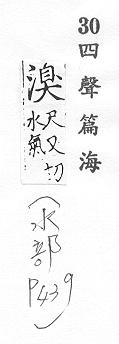 30 四聲篇海
溴
尺又切
水氣
(水部 P439)